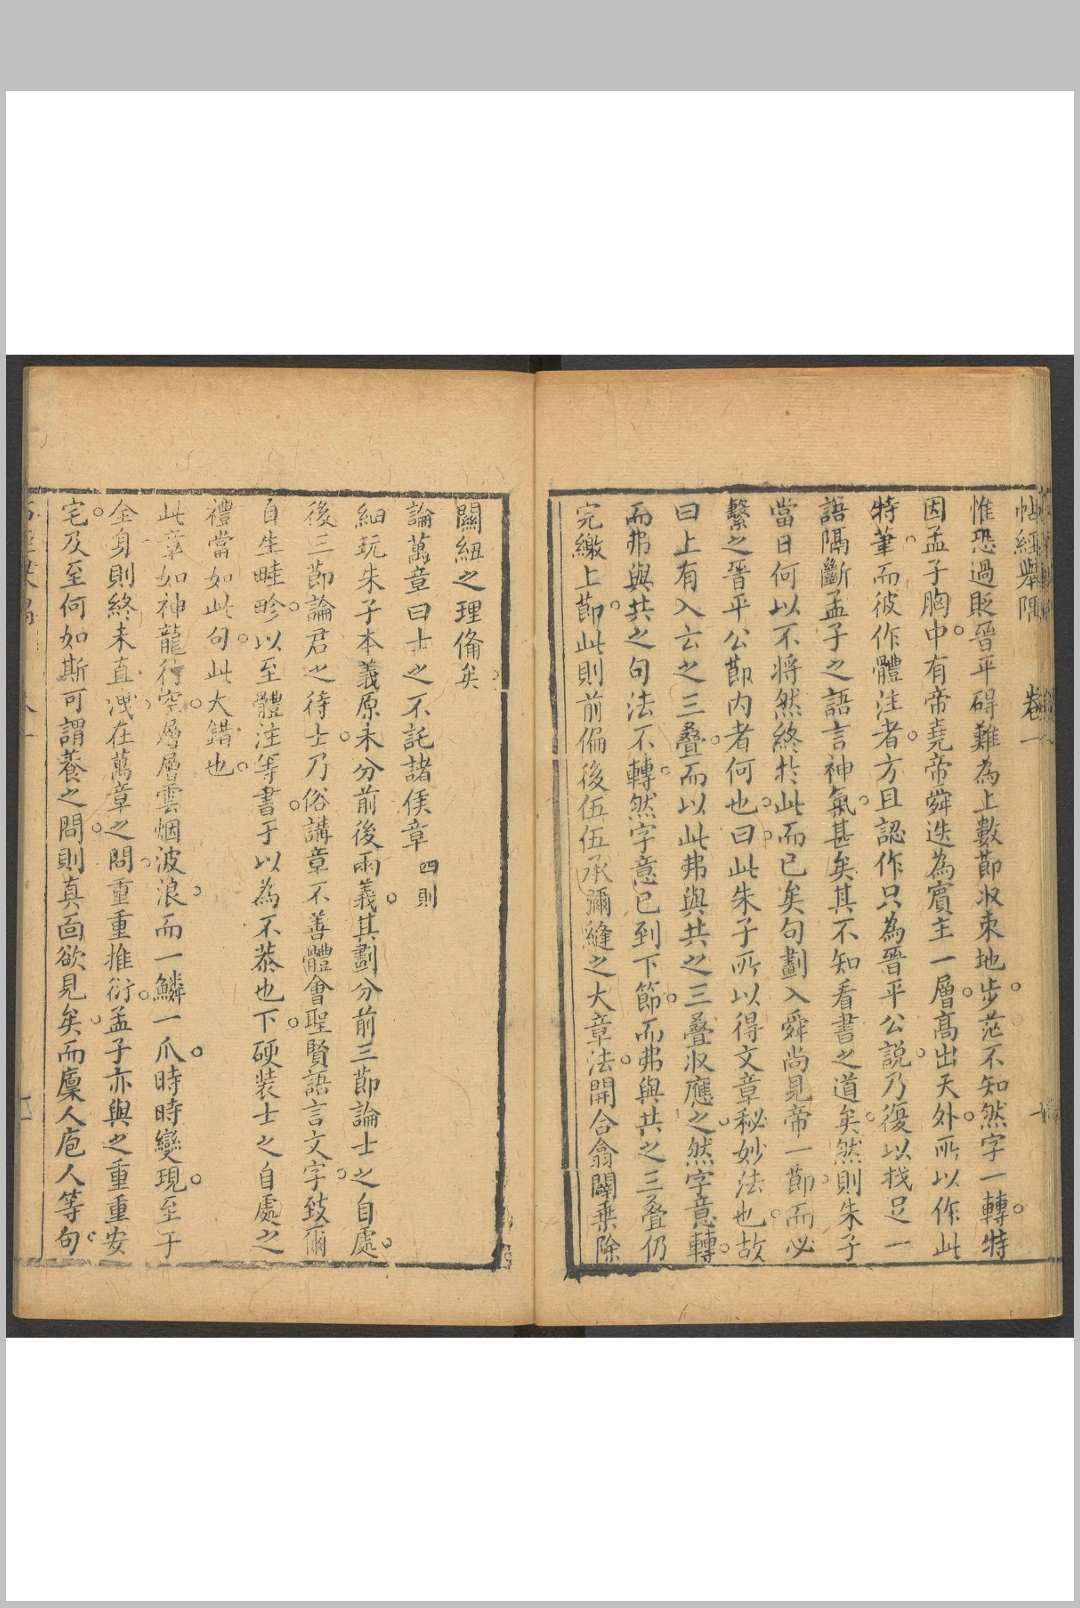 帖經舉隅 卷一
惟恐過貶晉平碍難為上數節收束地步茫不知然字一轉特
因孟子胸中有帝堯帝舜迭為賓主一層高出天外所以作此
特筆而彼作體注者方且認作只為晉平公説乃復以找足一
語隔斷孟子之語言神氣甚矣其不知看書之道矣然則朱子
當日何以不將然終於此而已矣句劃入舜尚見帝一節而必
繫之晉平公節内者何也曰此朱子所以得文章秘妙法也故
曰上有入云之三叠而以此弗與共之三叠収應之然字意轉
而弗與共之句法不轉然字意已到下節而弗與共之三叠仍
完繳上節此則前偏後伍伍承彌縫之大章法開合翕闢乗除
關紐之理備矣
論萬章曰士之不託諸侯章 四則
細玩朱子本義原未分前後兩義其劃分前三節論士之自處
後三節論君之待士乃俗講章不善體會聖賢語言文字致爾
自生畦畛以至體注等書于以為不恭也下硬装士之自處之
禮當如此句此大錯也
此章如神龍行空層層雲烟波浪而一鱗一爪時時變現至于
全身則終未直洩在萬章之問重重推衍孟子亦與之重重安
宅及至何如斯可謂養之問則真面欲見矣而廩人庖人等句